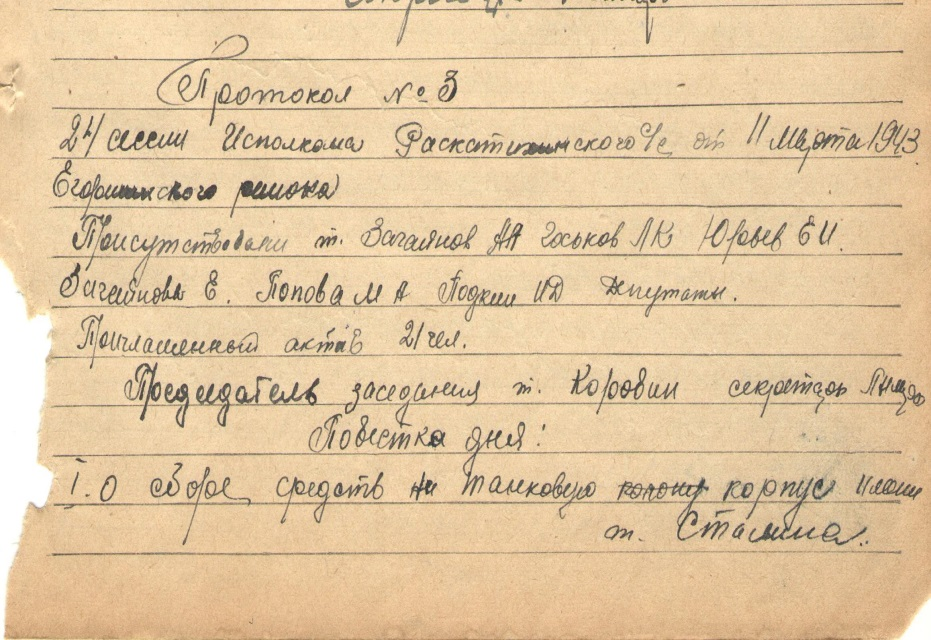 Протокол № 3
24 сессии Исполкома Раскатихинского с/с от 11 Марта 1943
Егоршинского района
Присутствовали т. Загайнов АА Госьков ЛК Юрьев ЕИ.
Загайнова Е. Попова М А Подкин ИД Депутаты.
Приглашенный актив 21 чел.
Председатель заседания т. Коровин секретарь
Повестка дня:
1. О сборе средств на танковую колону корпус имени
т. Сталина.